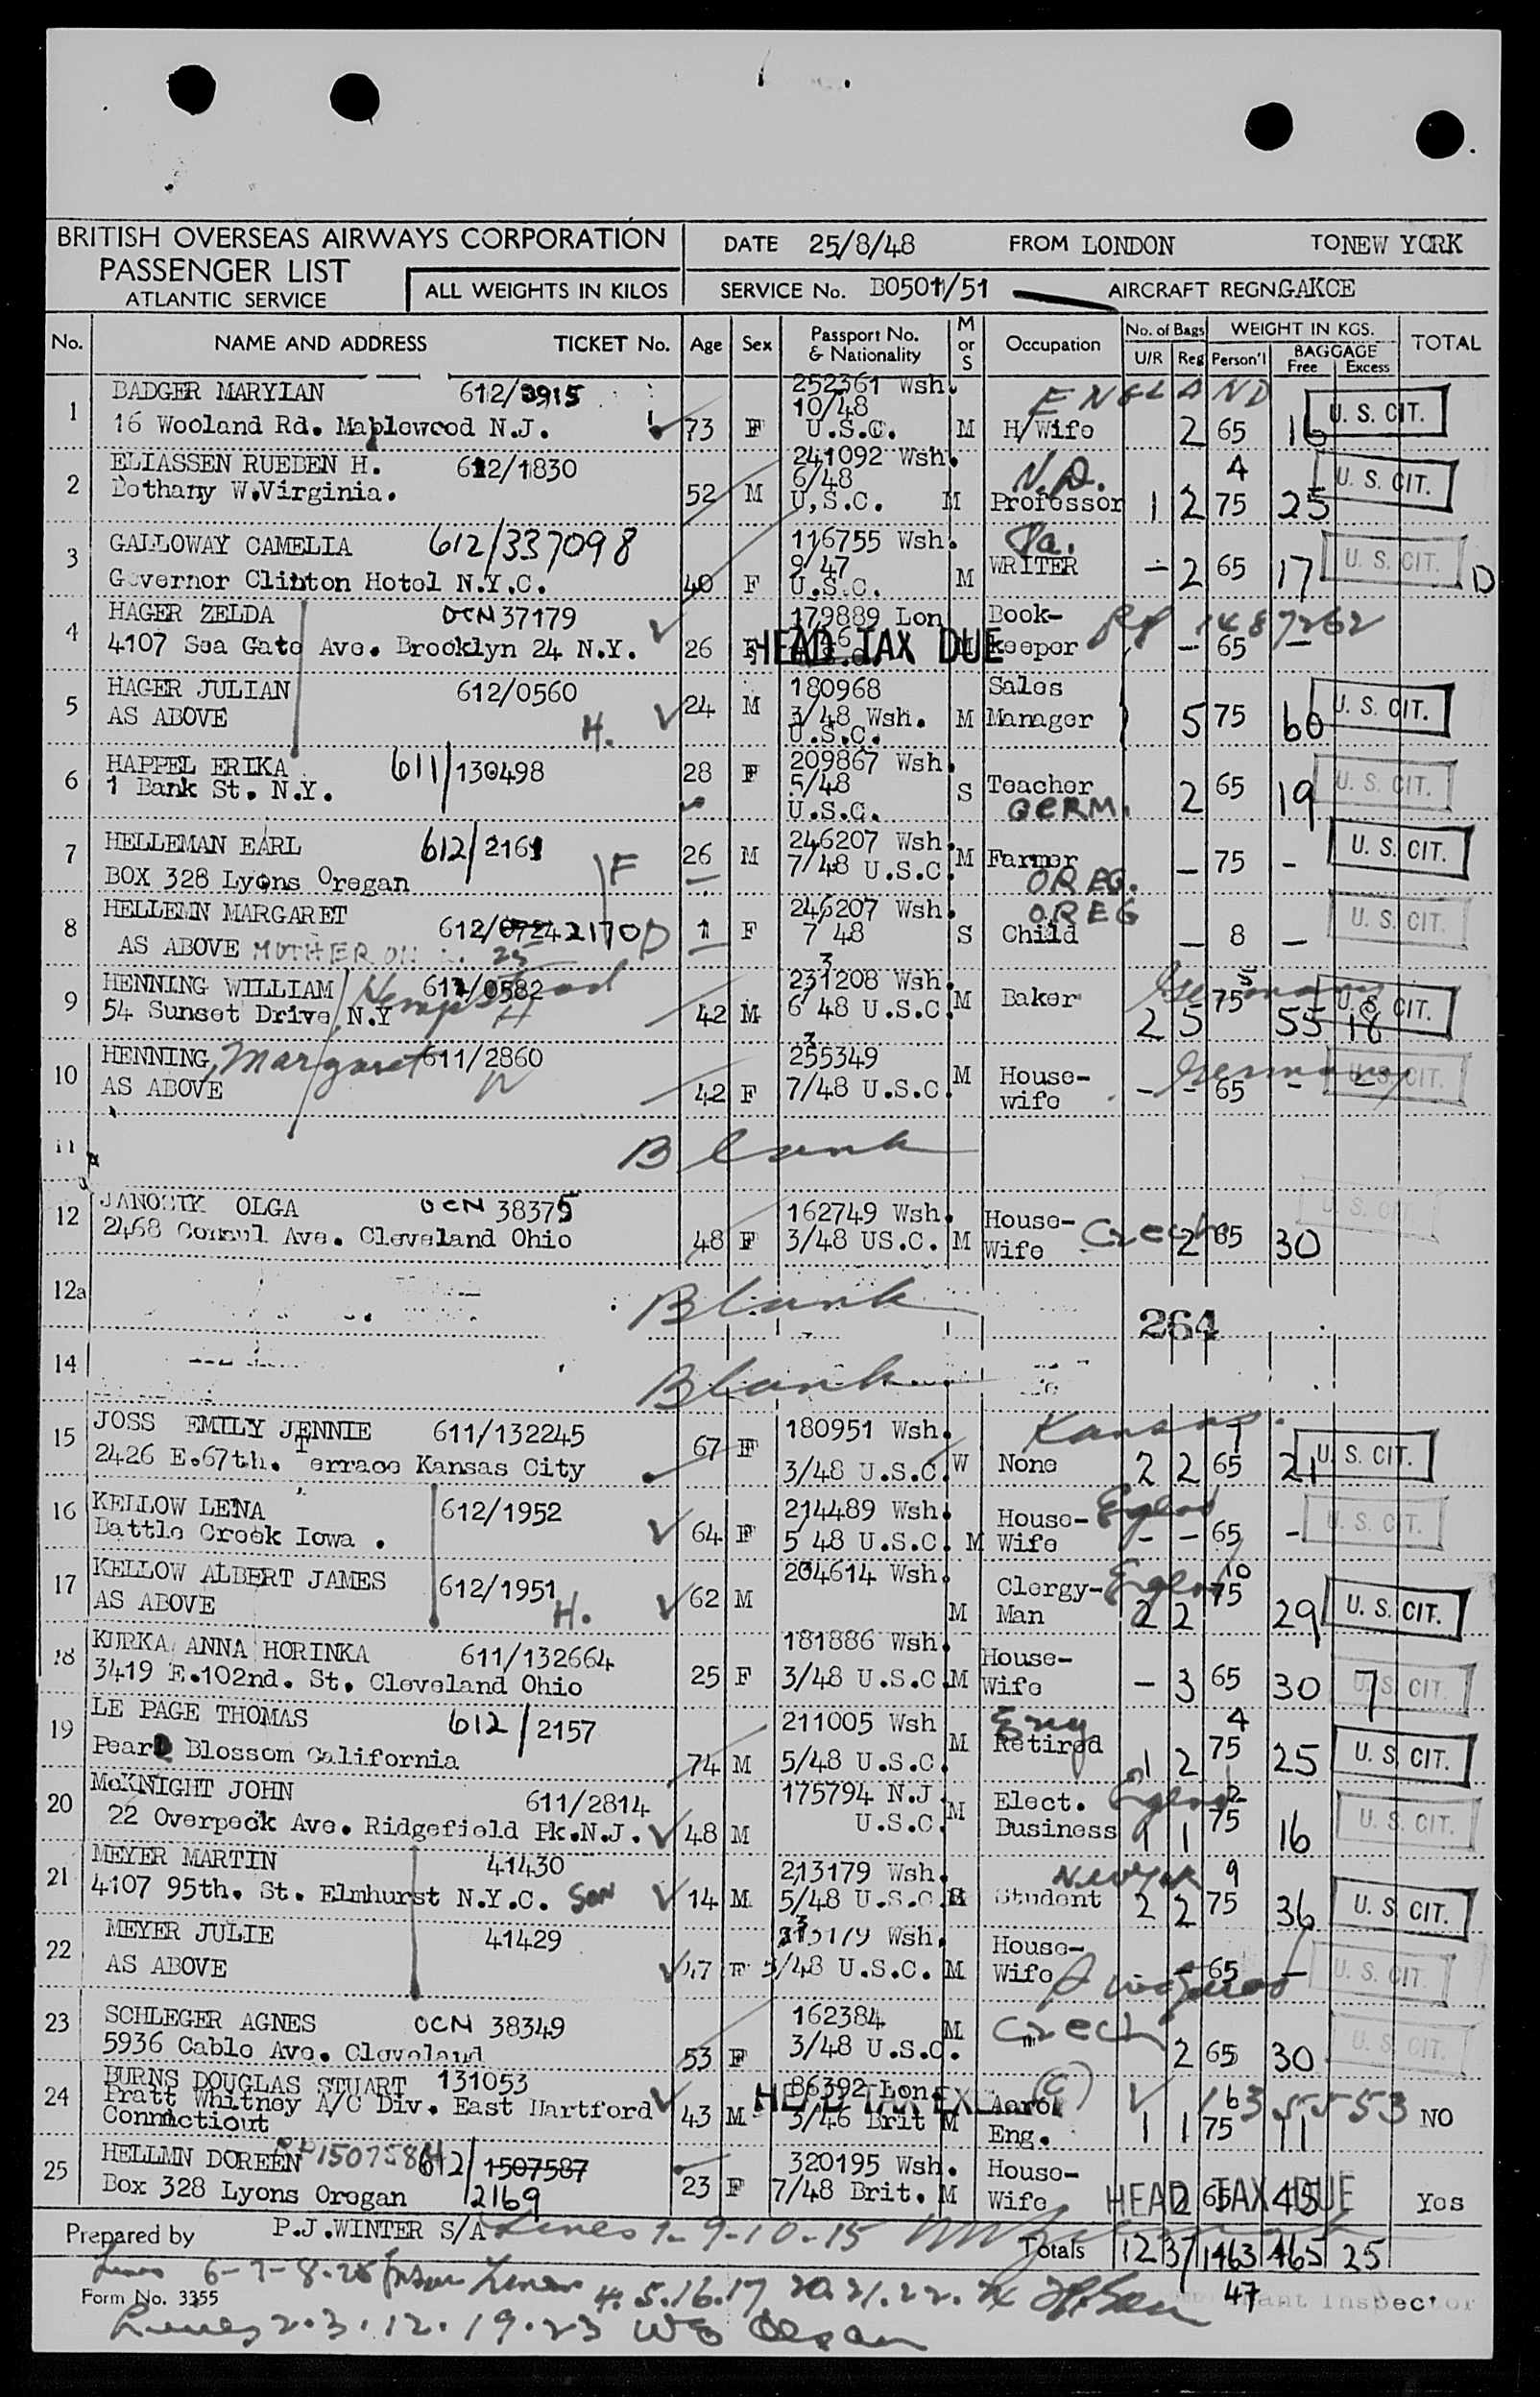 BRITISH OVERSEAS AIRWAYS CORPORATION
PASSENGER LIST
ATLANTIC SERVICE
ALL WEIGHTS IN KILOS
DATE 25/8/48 FROM LONDON TO NEW YORK
SERVICE No. B0501/51 AIRCRAFT REGN. GAKCE
No. NAME AND ADDRESS TICKET No. Age Sex Passport No. & Nationality M or S Occupation No. of Bags U/R Reg WEIGHT IN KGS. Person'l BAGGAGE Free Excess TOTAL
1 BADGER MARYIAN 612/3915 252361 Wsh. ENGLAND
10/48
16 Wooland Rd. Maplewood N.J. 73 F U.S.C. M H/Wife 2 65 16 U. S. CIT.
2 ELIASSEN RUEBEN H. 612/1830 241092 Wsh. N.D. 4
6/48
Bethany W.Virginia. 52 M U.S.C. M Professor 1 2 75 25 U. S. CIT.
3 GALLOWAY CAMELIA 612/337098 116755 Wsh. Pa.
9/47
Governor Clinton Hotel N.Y.C. 40 F U.S.C. M WRITER - 2 65 17 U. S. CIT. D
4 HAGER ZELDA OCN 37179 179889 Lon Book- 1487262
4107 Sea Gate Ave. Brooklyn 24 N.Y. 26 F HEAD TAX DUE keeper - 65 -
5 HAGER JULIAN 612/0560 180968 Sales
AS ABOVE H. 24 M 3/48 Wsh. M Manager 5 75 60 U. S. CIT.
U.S.C.
6 HAPPEL ERIKA 611/130498 28 F 209867 Wsh.
1 Bank St. N.Y. 5/48 S Teacher 2 65 19 U. S. CIT.
U.S.C. GERM.
7 HELLEMAN EARL 612/2161 26 M 246207 Wsh. M Farmer - 75 - U. S. CIT.
BOX 328 Lyons Oregan F 7/48 U.S.C. OREG.
8 HELLEMN MARGARET 612/0724 2170 D 1 F 246207 Wsh. OREG
AS ABOVE MOTHER ON L. 25 7 48 S Child - 8 - U. S. CIT.
9 HENNING WILLIAM Hempstead 611/0582 231208 Wsh. Germany 5
54 Sunset Drive N.Y H 42 M 6 48 U.S.C. M Baker 2 5 75 55 18 U. S. CIT.
10 HENNING, Margaret 611/2860 255349 Germany
AS ABOVE W 42 F 7/48 U.S.C. M House-wife - - 65 - U. S. CIT.
11 Blank
12 JANOSIK OLGA OCN 38375 162749 Wsh. House- Czech
2468 Ave. Cleveland Ohio 48 F 3/48 US.C. M Wife 2 65 30 U. S. CIT.
12a Blank
264
14 Blank
15 JOSS EMILY JENNIE 611/132245 67 F 180951 Wsh. Kansas. 7
2426 E.67th. Terrace Kansas City 3/48 U.S.C. W None 2 2 65 21 U. S. CIT.
16 KELLOW LENA 612/1952 214489 Wsh. House- England
Battle Creek Iowa . 64 F 5 48 U.S.C. M Wife - - 65 - U. S. CIT.
17 KELLOW ALBERT JAMES 612/1951 204614 Wsh. Clergy- England 10
AS ABOVE H. 62 M M Man 2 2 75 29 U. S. CIT.
18 KURKA ANNA HORINKA 611/132664 181886 Wsh. House-
3419 E.102nd. St. Cleveland Ohio 25 F 3/48 U.S.C. M Wife - 3 65 30 7 U. S. CIT.
19 LE PAGE THOMAS 612/2157 211005 Wsh Eng 4
Pear Blossom California 74 M 5/48 U.S.C. M Retired 1 2 75 25 U. S. CIT.
20 McKNIGHT JOHN 611/2814 175794 N.J. Elect. England 2
22 Overpeck Ave. Ridgefield Pk.N.J. 48 M U.S.C. M Business 1 1 75 16 U. S. CIT.
21 MEYER MARTIN 41430 213179 Wsh. New York 9
4107 95th. St. Elmhurst N.Y.C. Son 14 M 5/48 U.S.C. Student 2 2 75 36 U. S. CIT.
22 MEYER JULIE 41429 Wsh. House-
AS ABOVE 47 F 5/48 U.S.C. M Wife - 65 - U. S. CIT.
23 SCHLEGER AGNES OCN 38349 162384 M Czech
5936 Cable Ave. Cleveland 53 F 3/48 U.S.C. 2 65 30 U. S. CIT.
24 BURNS DOUGLAS STUART 131053 86392 Lon. HEAD TAX EX (C)
Pratt Whitney A/C Div. East Hartford 43 M 3/46 Brit M Aero. Eng. 1 1 75 11 NO
Connacticut
25 HELLMN DOREEN 612/1507587 320195 Wsh. House-
Box 328 Lyons Oregan 2169 23 F 7/48 Brit. M Wife HEAD TAX DUE 2 65 45 Yes
Prepared by P.J.WINTER S/A Lines 1-9-10-15 Totals 12 37 1463 465 25
Lines 6-7-8-25 Lines 4.5.16.17 20.21.22.24
47
Form No. 3355 Inspector
Lines 2.3.12.19.23